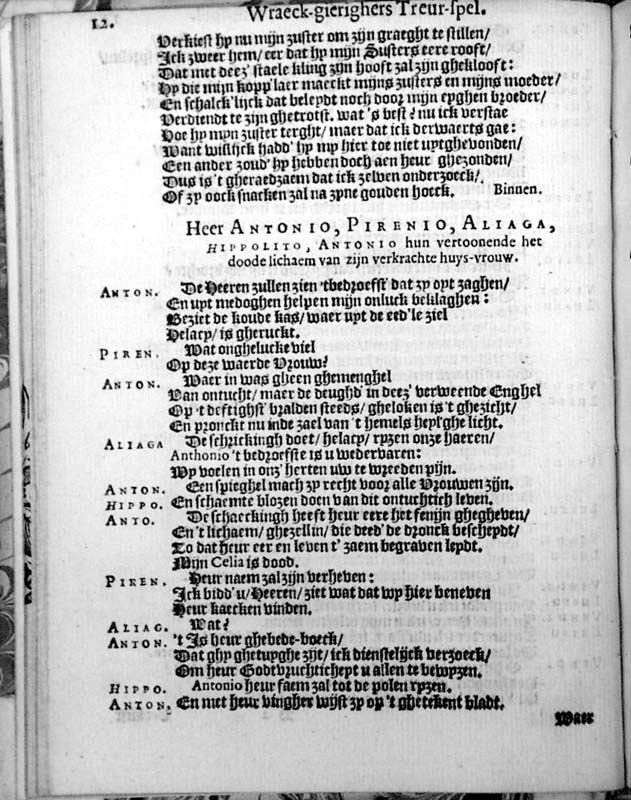 12. Wraeck-gierighers Treur-spel.
Verkiest hy nu mijn zuster om zijn graeght te stillen/
Ick zweer hem/ eer dat hy mijn Susters eere rooft/
Dat met deez' staele kling zijn hooft zal zijn ghekloost:
Hy die mijn kopp'laer maeckt mijns zusters en mijns moeder/
En schalck'lijck dat beleydt noch door mijn eyghen broeder/
Verdiendt te zijn ghetrotst. wat 's best? nu ick verstae
Hoe hy mijn zuster terght/ maer dat ick derwaerts gae:
Want wislijck hadd' hy my hier toe niet uytghevonden/
Een ander zoud' hy hebben doch aen heur ghezonden/
Dus is 't gheraedzaem dat ick zelven onderzoeck/
Of zy oock snacken zal na zyne gouden hoeck. Binnen.
Heer ANTONIO, PIRENIO, ALIAGA,
HIPPOLITO, ANTONIO hun vertoonende het
doode lichaem van zijn verkrachte huys-vrouw.
ANTON. De Heeren zullen zien 'tbedroefst' dat zy oyt zaghen/
En uyt medoghen helpen mijn onluck beklaghen:
Beziet de koude kas/ waer uyt de eed'le ziel
Helacy/ is gheruckt.
PIREN. Wat onghelucke viel
Op deze waerde Vrouw?
ANTON. Waer in was gheen ghemenghel
Van ontucht/ maer de deughd' in deez' verweende Enghel
Op 't deftighst' bralden steeds/ gheloken is 't ghezicht/
En pronckt nu inde zael van 't hemels heyl'ghe licht.
ALIAGA De schrickingh doet/ helacy/ ryzen onze haeren/
Anthonio 't bedroefste is u wedervaren:
Wy voelen in onz' herten uw te wreeden pijn.
ANTON. Een spieghel mach zy recht voor alle Vrouwen zijn.
HIPPO. En schaemte blozen doen van dit ontuchtich leven.
ANTO. De schaeckingh heeft heur eere het fenijn ghegheven/
En 't lichaem/ ghezellin/ die deed' de dronck bescheydt/
To dat heur eer en leven t' zaem begraven leydt.
Mijn Celia is dood.
PIREN. Heur naem zal zijn verheven:
Ick bidd' u/ Heeren/ ziet wat dat wy hier beneven
Heur kaecken vinden.
ALIAG. Wat?
ANTON. 't Is heur ghebede-boeck/
Dat ghy ghetuyghe zijt/ ick dienstelijck verzoeck/
Om heur Godtvruchticheyt u allen te bewyzen.
HIPPO. Antonio heur faem zal tot de polen ryzen.
ANTON. En met heur vingher wijst zy op 't ghetekent bladt.
Waer